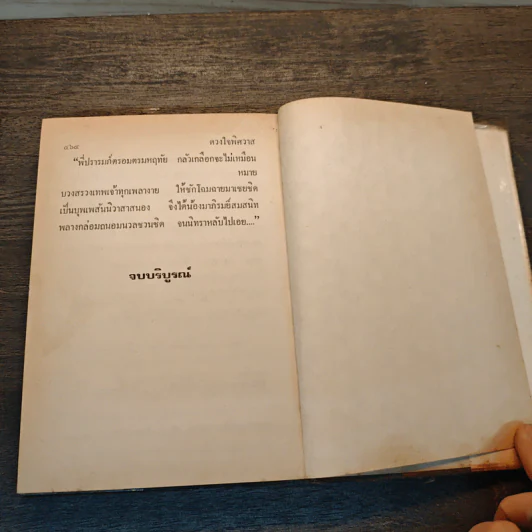 ๘๖๘
ดวงใจพิศวาส
“พี่ปรารมภ์ตรอมตรมหฤทัย กลัวเกลือกจะไม่เหมือน
หมาย
บวงสรวงเทพเจ้าทุกเพลางาย ให้ชักโฉมฉายมาเชยชิด
เป็นบุพเพสันนิวาสาสนอง จึงได้น้องมาภิรมย์สมสนิท
พลางกล่อมถนอมนวลชวนชิด จนนิทราหลับไปเอย....”
จบบริบูรณ์